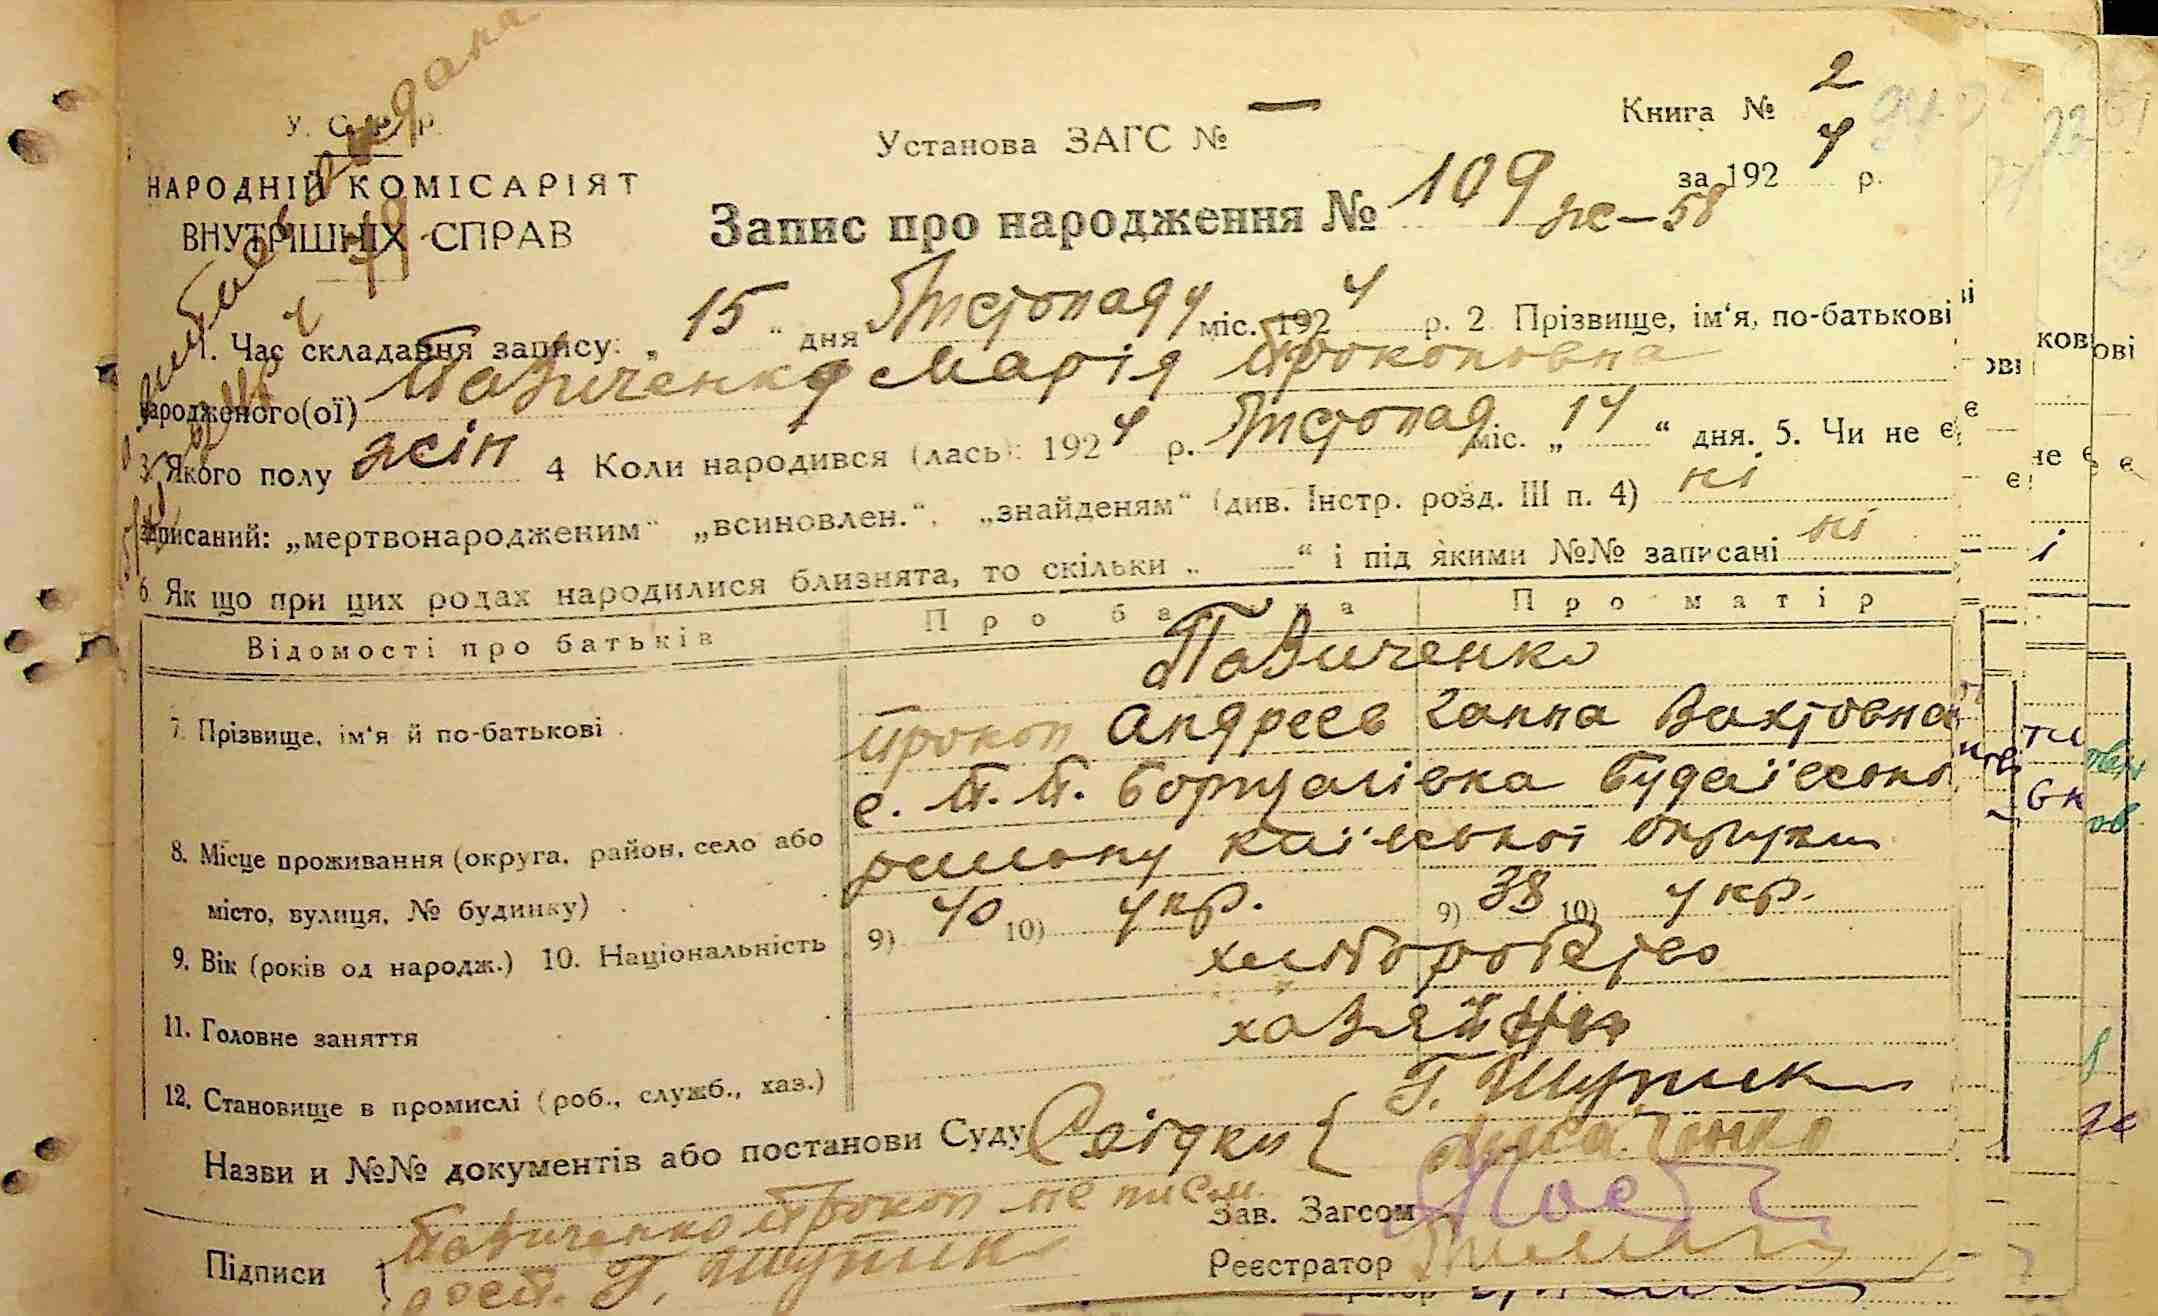 У. С. Р. Р.
НАРОДНІЙ КОМІСАРІЯТ
ВНУТРІШНІХ СПРАВ
Установа ЗАГС № —
Книга № 2
за 1924 р.
Запис про народження № 109 ж–58
1. Час складання запису: „15" дня Листопаду міс. 1924 р. 2 Прізвище, ім'я, по-батькові
народженого(ої) Павиченко Марія Прокоповна
3. Якого полу жін 4 Коли народився (лась): 1924 р. Листопад міс. „14" дня. 5. Чи не є
записаний: „мертвонародженим" „всиновлен.", „знайденям" (див. Інстр. розд. III п. 4) ні
6. Як що при цих родах народилися близнята, то скільки „ " і під якими №№ записані ні
Відомості про батьків
Про батька
Про матір
Павиченко
7. Прізвище, ім'я й по-батькові
Прокоп Андреев
Ганна
8. Місце проживання (округа, район, село або
місто, вулиця, № будинку)
с. П. П. Борщагівка Будаївсько
району Київської округи
9. Вік (років од народж.) 10. Національність
9) 40 10) Укр.
9) 38 10) Укр.
11. Головне заняття
хліборобство
12. Становище в промислі (роб., служб., хаз.)
Назви и №№ документів або постанови Суду
Свідки { Г. Шупик
Зав. Загсом
Підписи { Павиченко Прокоп не писм.
Г. Шупик
Реєстратор